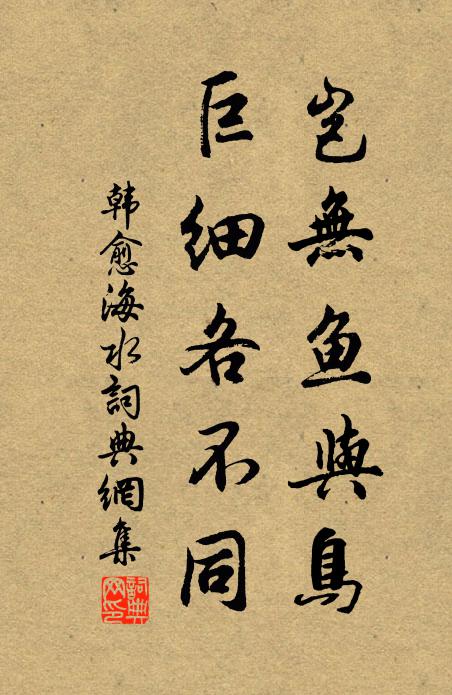 豈無鱼與鳥
巨细各不同
韩愈海水詞典網集
詞典網印